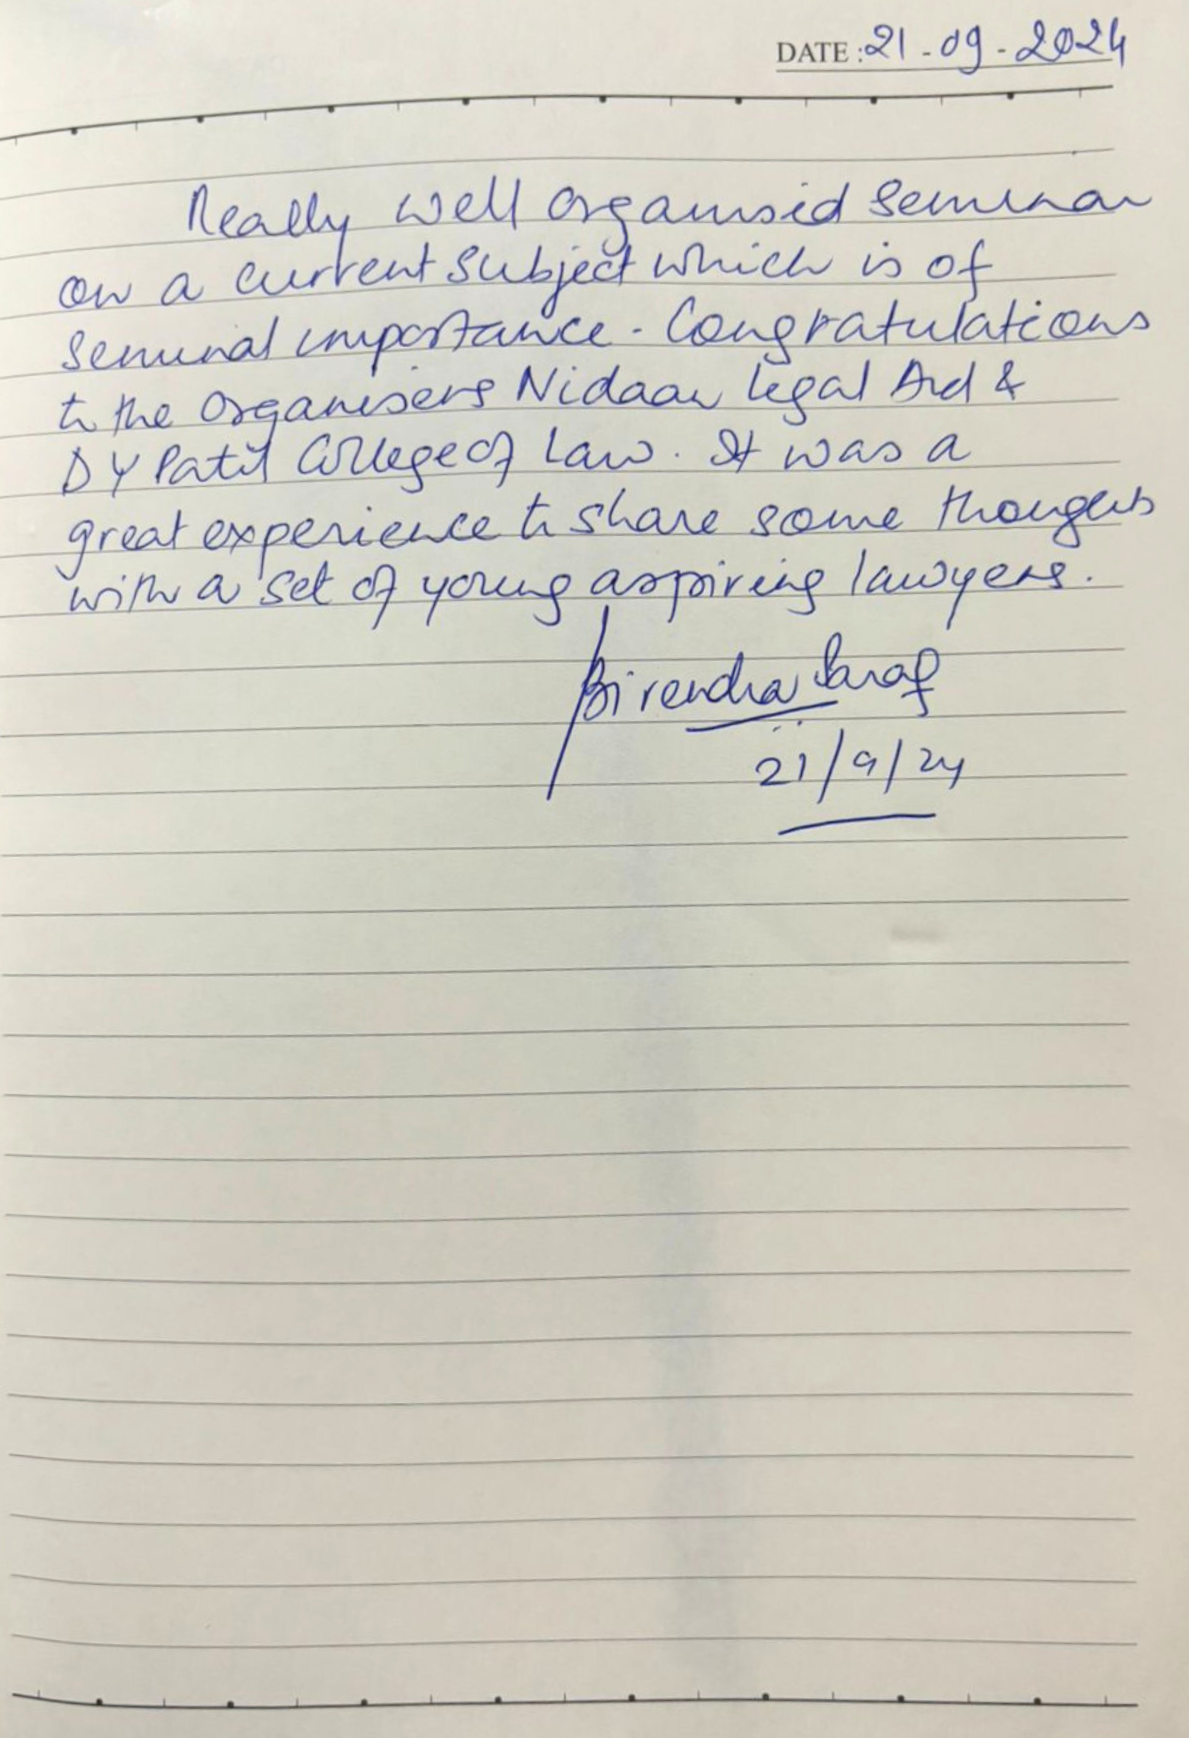 DATE : 21-09-2024
Really well organised seminar
on a current subject which is of
seminal importance. Congratulations
to the organisers Nidaan Legal Aid &
D Y Patil College of Law. It was a
great experience to share some thoughts
with a set of young aspiring lawyers.
Birendra Saraf
21/9/24